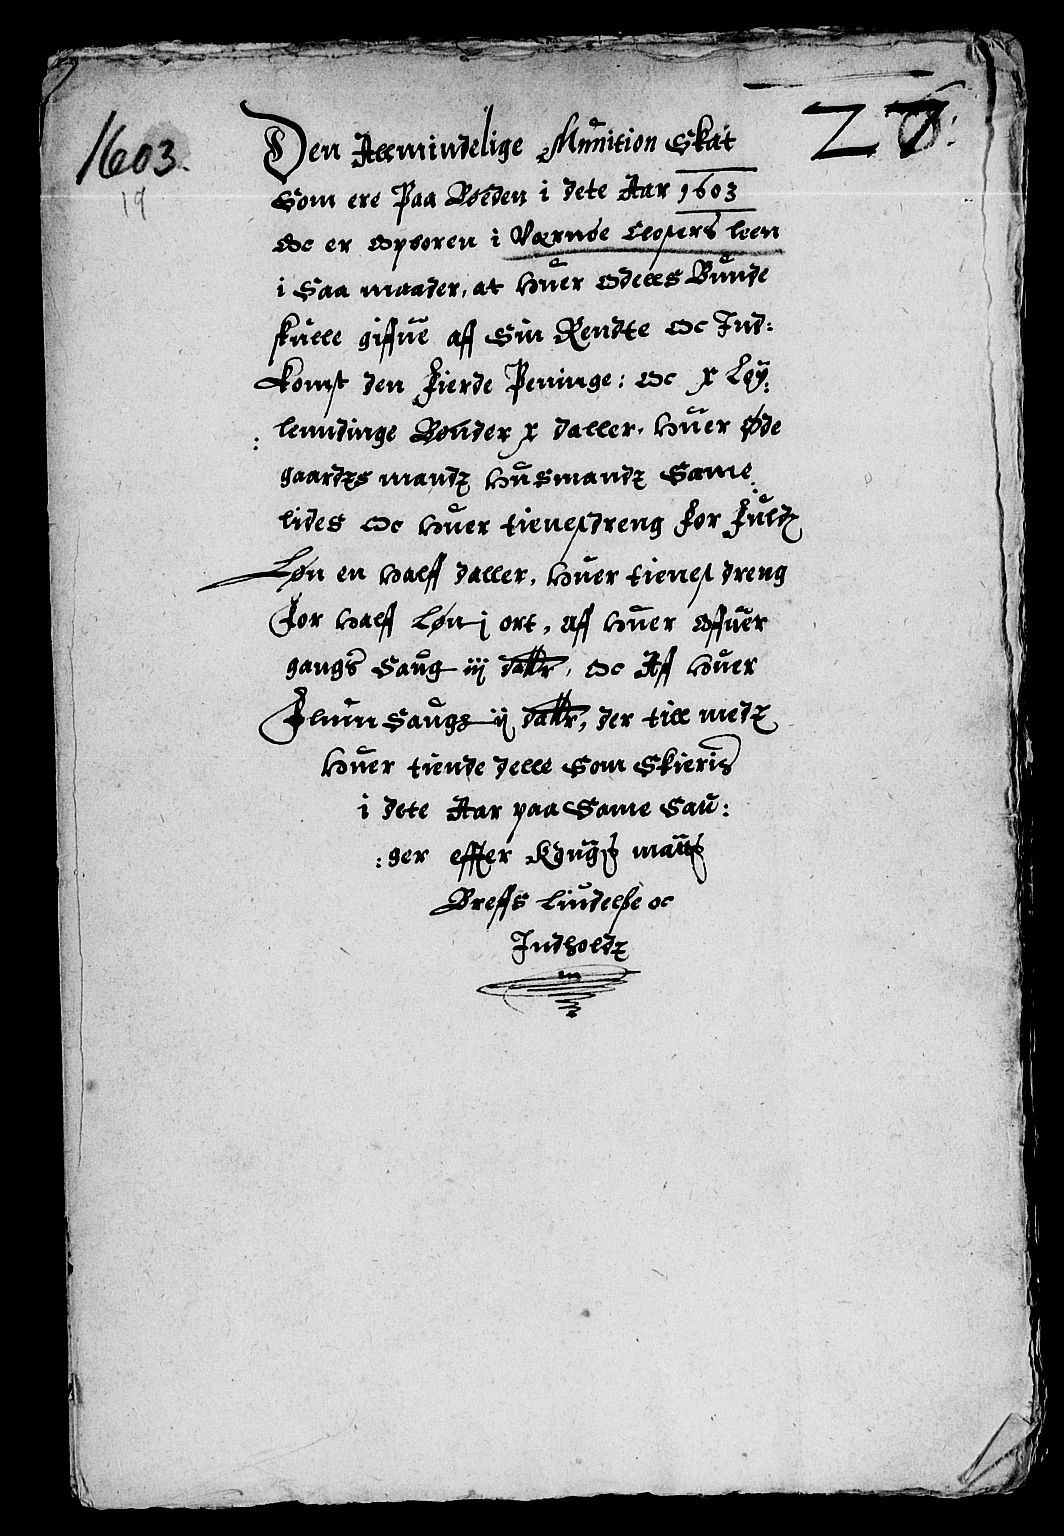 1603.
19
27.
Den Allmindelige Munition Skat
Som ere Paa Böeden i dete Aar 1603
Oc er Opboren i Værnöe Closters leen
i Saa maader, at huer Odells Bunde
skulle giffue aff Sin Rendte Oc Ind:
komst den Fierde Peninge: Oc x Löÿ:
: lenndinge Bönder x daller. huer Øde
gaardtzs mandtz husmandtz Same
lides Oc huer tienestdreng For Fuldtz
Løn en halff daller, huer tienest dreng
For half Løn j ort, aff huer Offuer
gangs Saug iij dallr, Oc Aff huer
Flum Saugs ij dallr, der till medtz
huer tiende delle Som Skieris
i dete Aar paa Same Sau:
:ger effter Kongs maÿts
Breffs liudelsse oc
Indholdtz